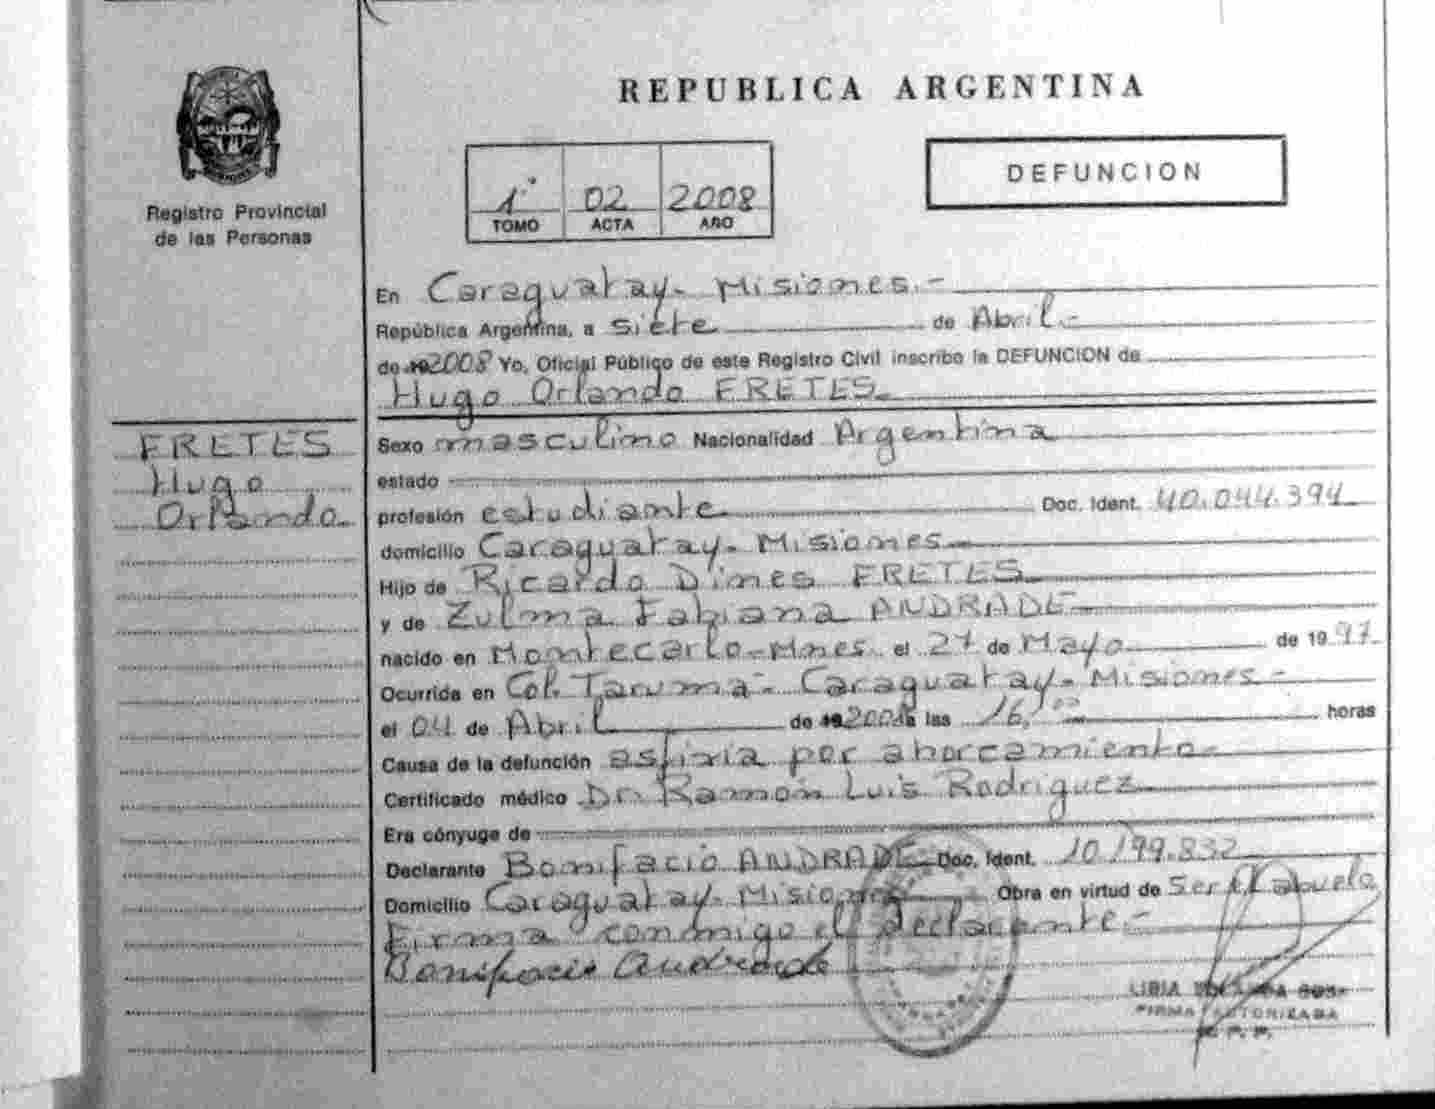 REPUBLICA ARGENTINA
Registro Provincial
de las Personas
1° 02 2008
TOMO ACTA AÑO
DEFUNCION
En Caraguatay - Misiones.-
República Argentina, a siete de Abril.-
de 19 2008 Yo, Oficial Público de este Registro Civil inscribo la DEFUNCION de
Hugo Orlando FRETES.
FRETES
Hugo
Orlando
Sexo masculino Nacionalidad Argentina
estado
profesión estudiante Doc. Ident. 40.044.394
domicilio Caraguatay - Misiones
Hijo de Ricardo Dines FRETES
y de Zulma Fabiana ANDRADE
nacido en Montecarlo - Mnes. el 27 de Mayo de 19 97
Ocurrida en Col. Taruma - Caraguatay - Misiones -
el 04 de Abril de 19 2008 a las 16,00 horas
Causa de la defunción asfixia por ahorcamiento
Certificado médico Dr. Ramón Luis Rodriguez
Era cónyuge de
Declarante Bonifacio ANDRADE Doc. Ident. 10.199.832
Domicilio Caraguatay - Misiones Obra en virtud de Ser el abuelo
Firma conmigo el declarante.-
Bonifacio Andrade
LIBIA
FIRMA AUTORIZADA
R. P. P.